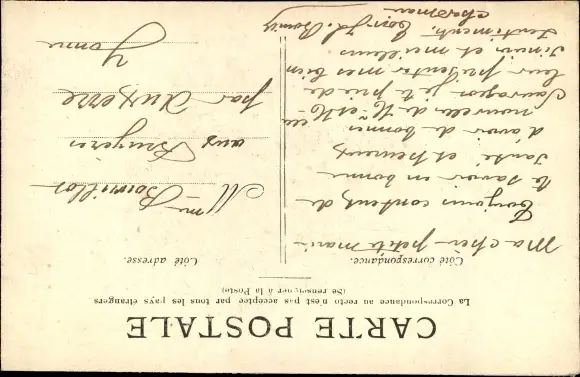 CARTE POSTALE
La Correspondance au recto n'est pas acceptée par tous les pays étrangers
(Se renseigner à la Poste)
Côté correspondance.
Côté adresse.
Ma chère petite
Toujours content de
te savoir en bonne
santé et heureux
d'avoir de bonnes
nouvelles de
je te prie de
leur présenter mes bien
et meilleurs
sentiments.
Mme
aux Bruyères
par Auxerre
Yonne